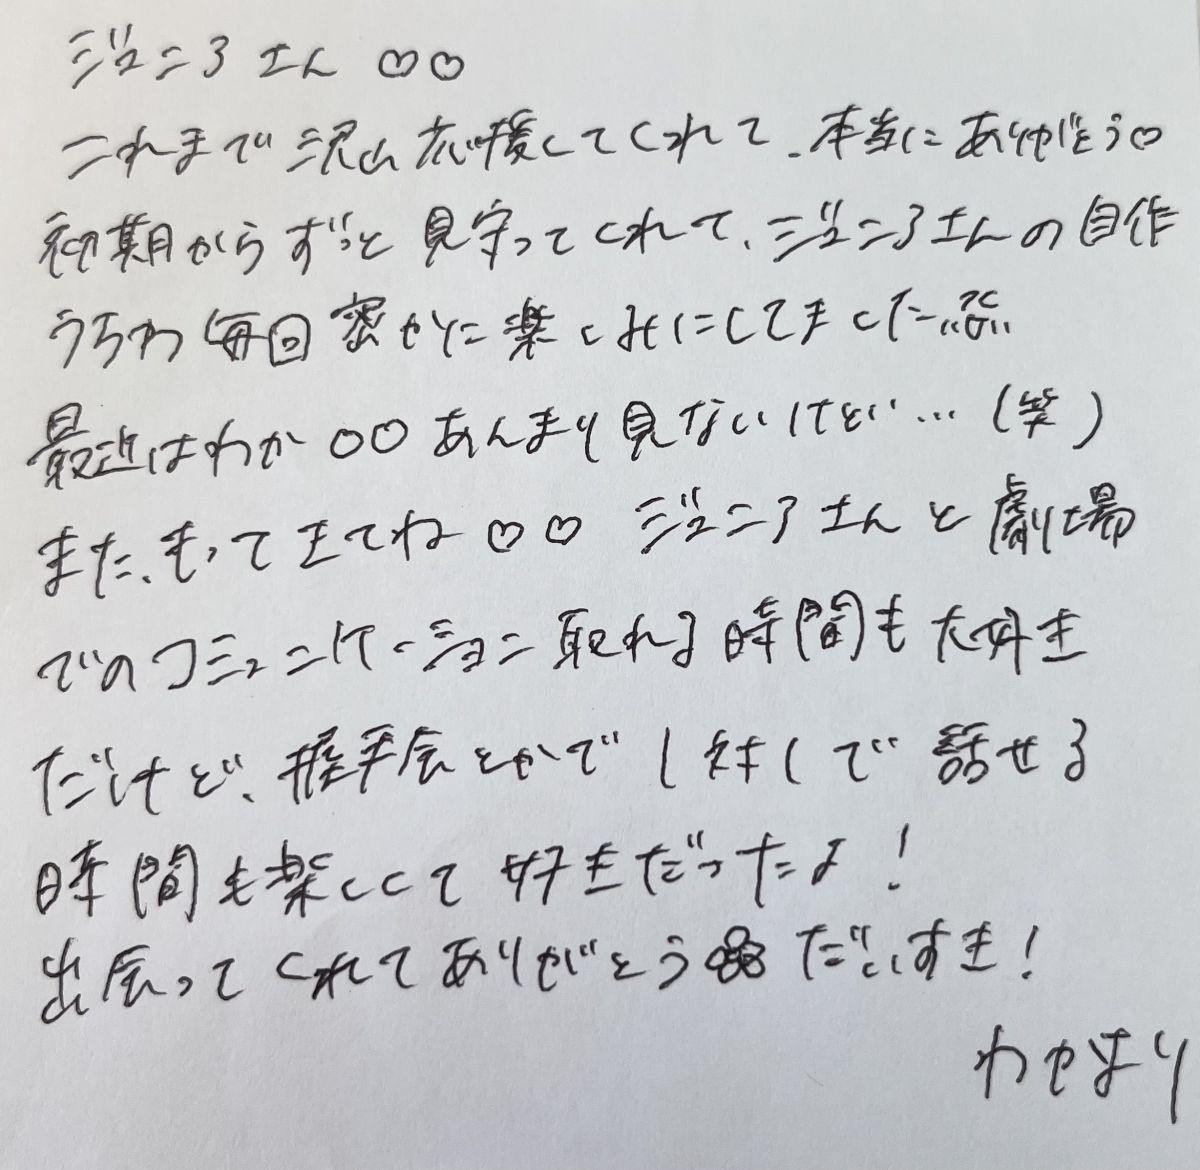 ジュニアさん♡♡
これまで沢山応援してくれて、本当にありがとう♡
初期からずっと見守ってくれて、ジュニアさんの自作
うちわ毎回密かに楽しみにしてました
最近はわか○○あんまり見ないけど…(笑)
また、もってきてね♡♡ ジュニアさんと劇場
でのコミュニケーション取れる時間も大好き
だけど、握手会とかで1対1で話せる
時間も楽しくて好きだったよ!
出会ってくれてありがとう だいすき!
わかまり